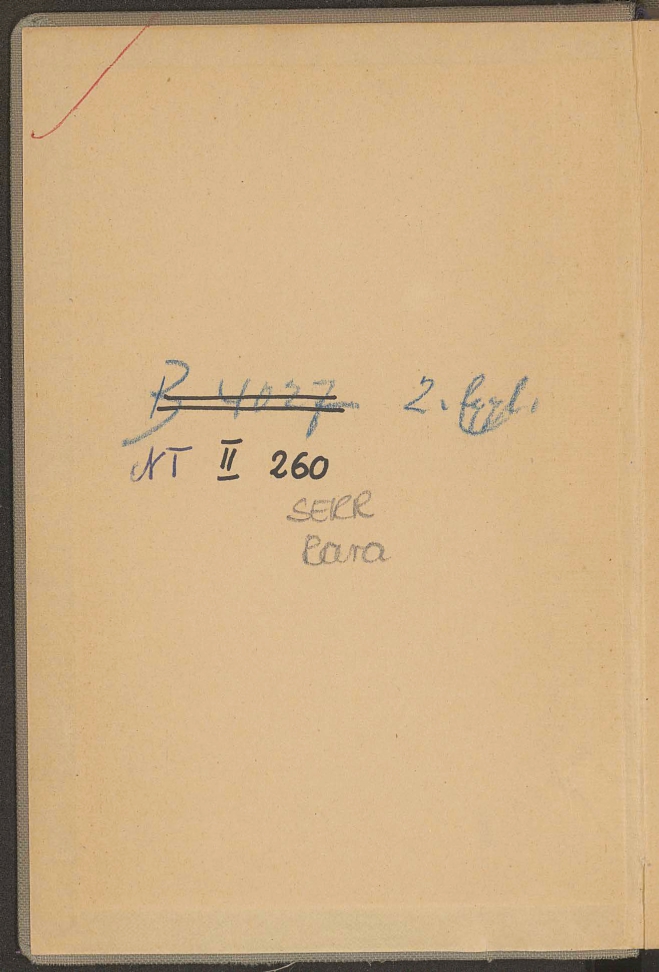 B 4027 2. Expl.
NT II 260
SERR
Cara